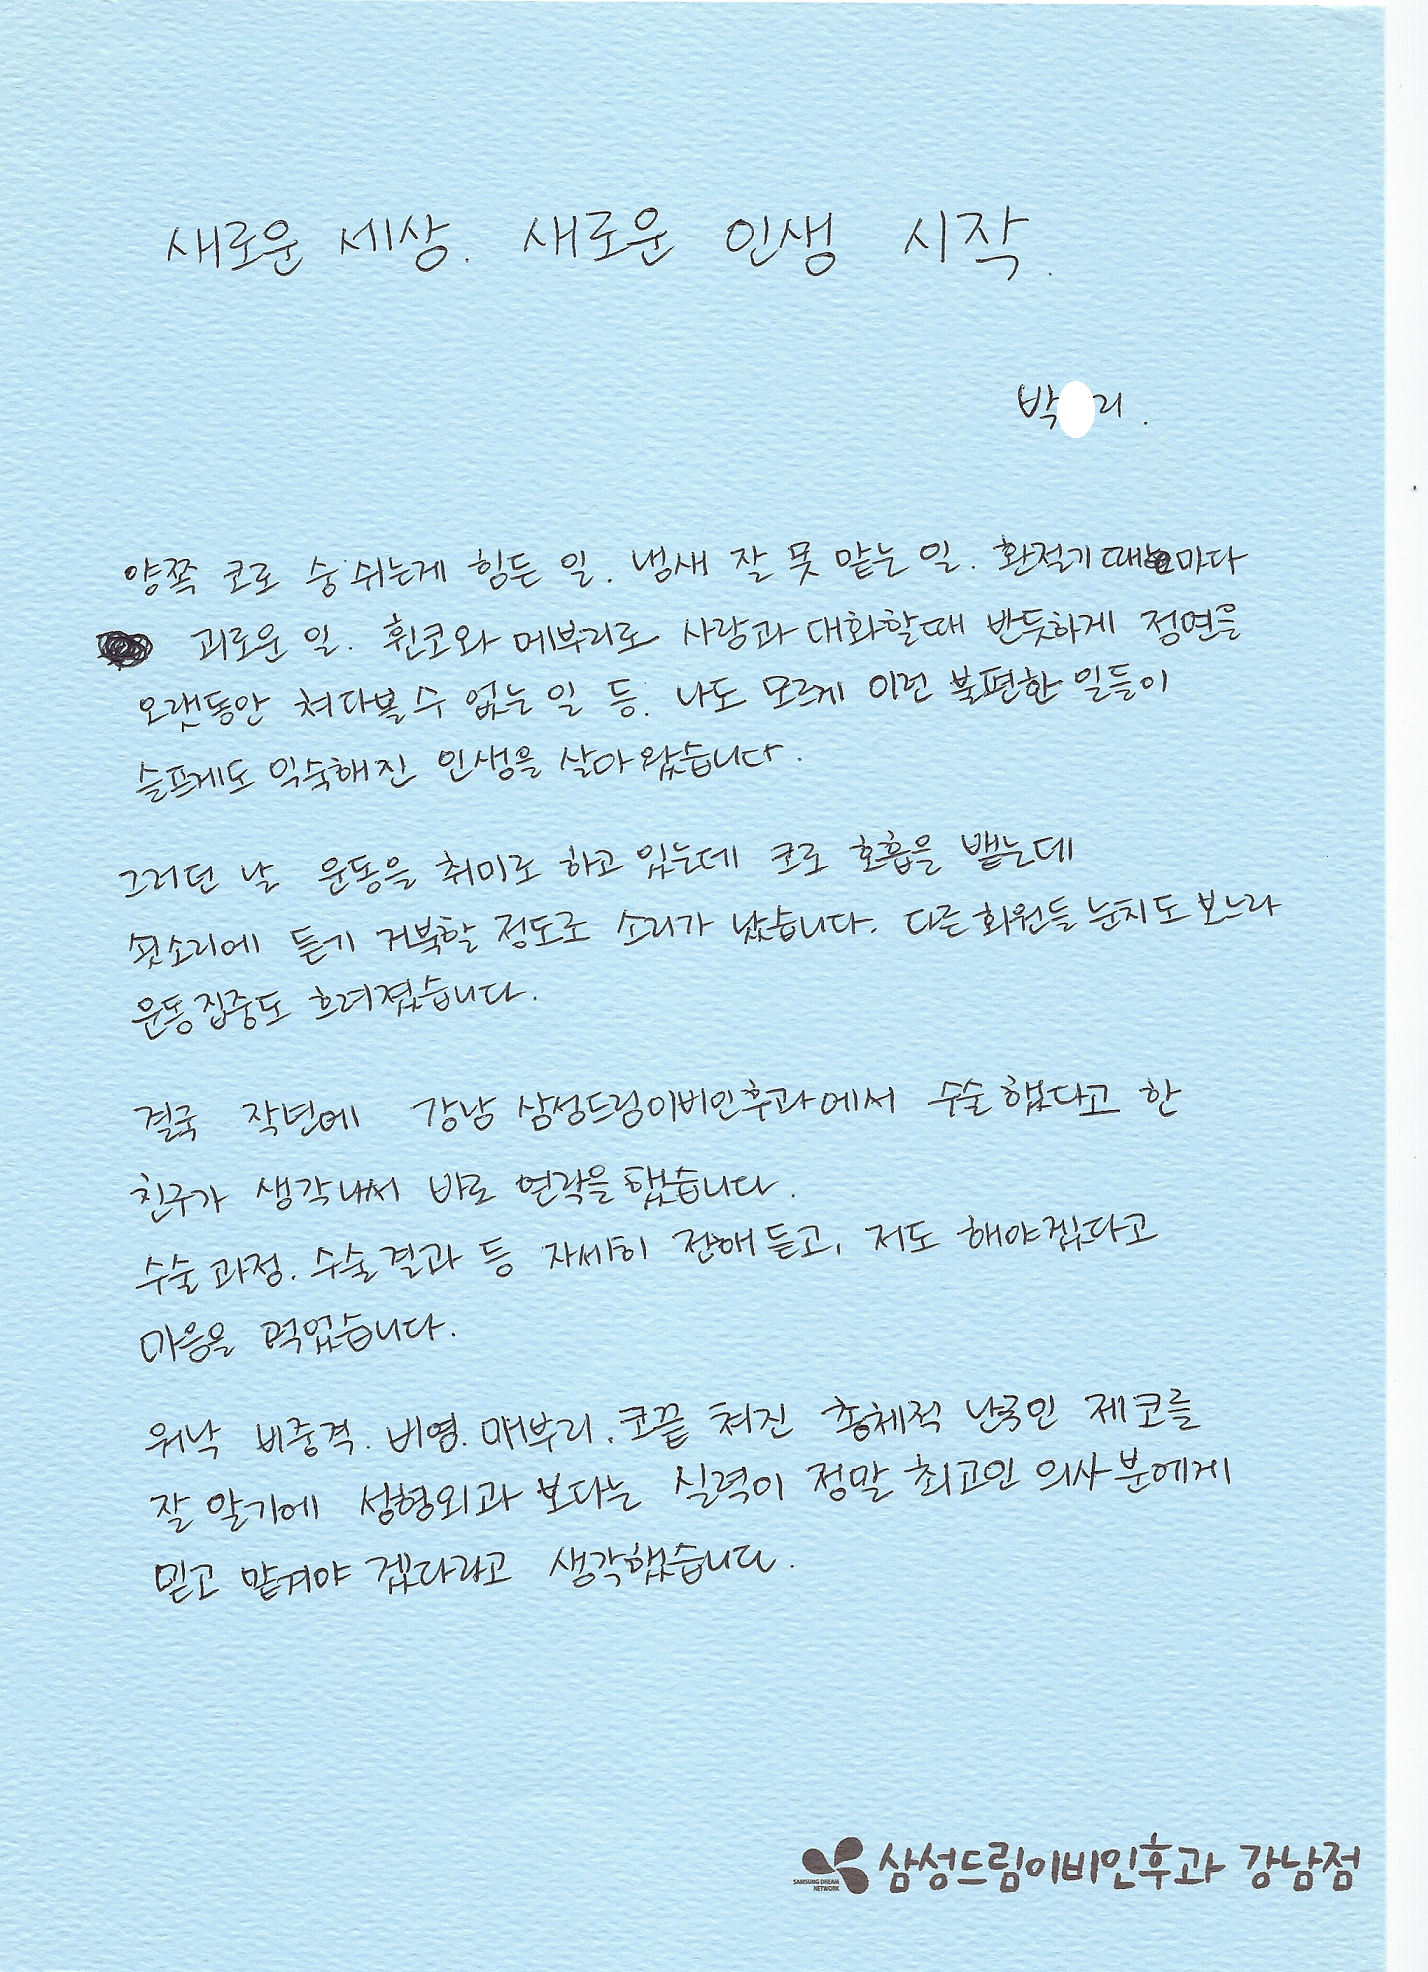 새로운 세상. 새로운 인생 시작.
박 리.
양쪽 코로 숨쉬는게 힘든 일. 냄새 잘 못 맡는 일. 환절기때마다
괴로운 일. 휜코와 메부리로 사람과 대화할때 반듯하게 정면을
오랫동안 쳐다볼 수 없는 일 등. 나도 모르게 이런 불편한 일들이
슬프게도 익숙해진 인생을 살아 왔습니다.
그러던 날 운동을 취미로 하고 있는데 코로 호흡을 뱉는데
쇳소리에 듣기 거북할 정도로 소리가 났습니다. 다른 회원들 눈치도 보느라
운동집중도 흐려졌습니다.
결국 작년에 강남 삼성드림이비인후과에서 수술했다고 한
친구가 생각나서 바로 연락을 했습니다.
수술 과정. 수술 결과 등 자세히 전해 듣고, 저도 해야겠다고
마음을 먹었습니다.
워낙 비중격. 비염. 매부리. 코끝 쳐진 총체적 난국인 제 코를
잘 알기에 성형외과 보다는 실력이 정말 최고인 의사분에게
믿고 맡겨야 겠다라고 생각했습니다.
SAMSUNG DREAM NETWORK
삼성드림이비인후과 강남점